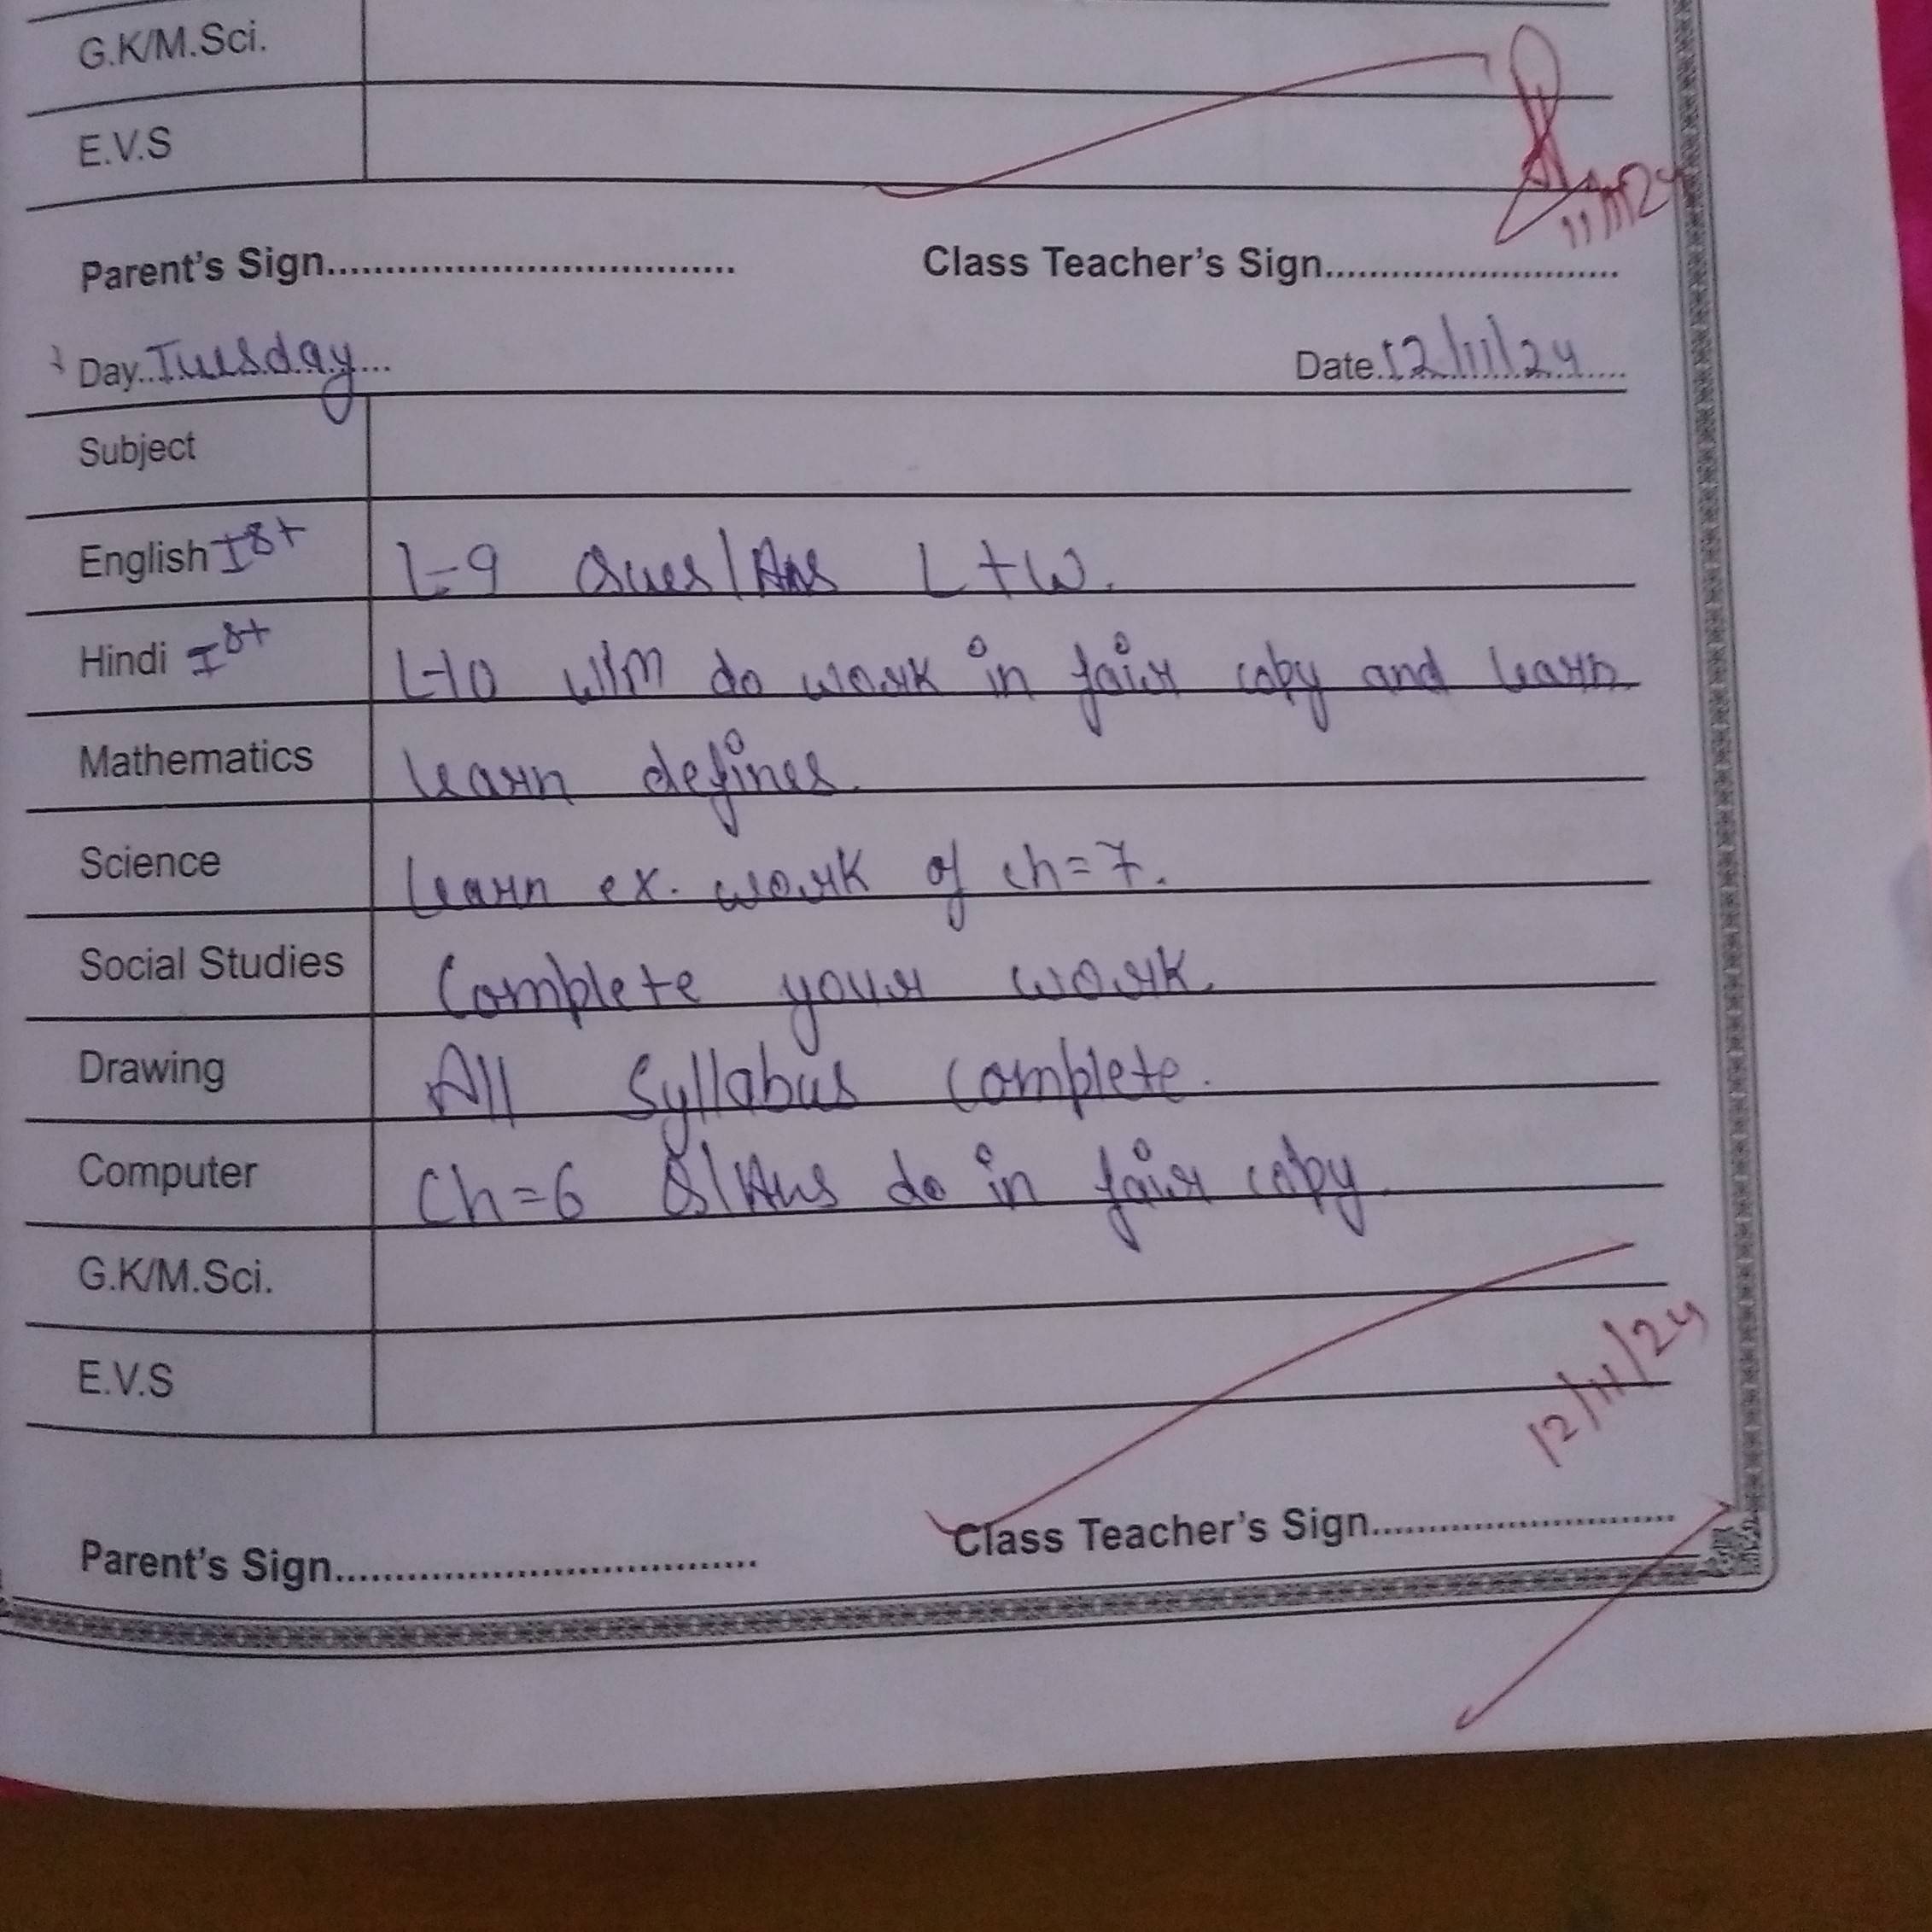 G.K/M.Sci.
E.V.S
11/11/24
Parent's Sign.................................... Class Teacher's Sign............................
Day..Tuesday... Date.12/11/24....
Subject
English Ist L-9 Ques/Ans L+W.
Hindi Ist L-10 do work in fair copy and learn.
Mathematics learn defines.
Science learn ex. work of ch=7.
Social Studies Complete your work.
Drawing All Syllabus complete.
Computer Ch=6 Q/Ans do in fair copy.
G.K/M.Sci.
E.V.S
12/11/24
Parent's Sign..................................... Class Teacher's Sign............................